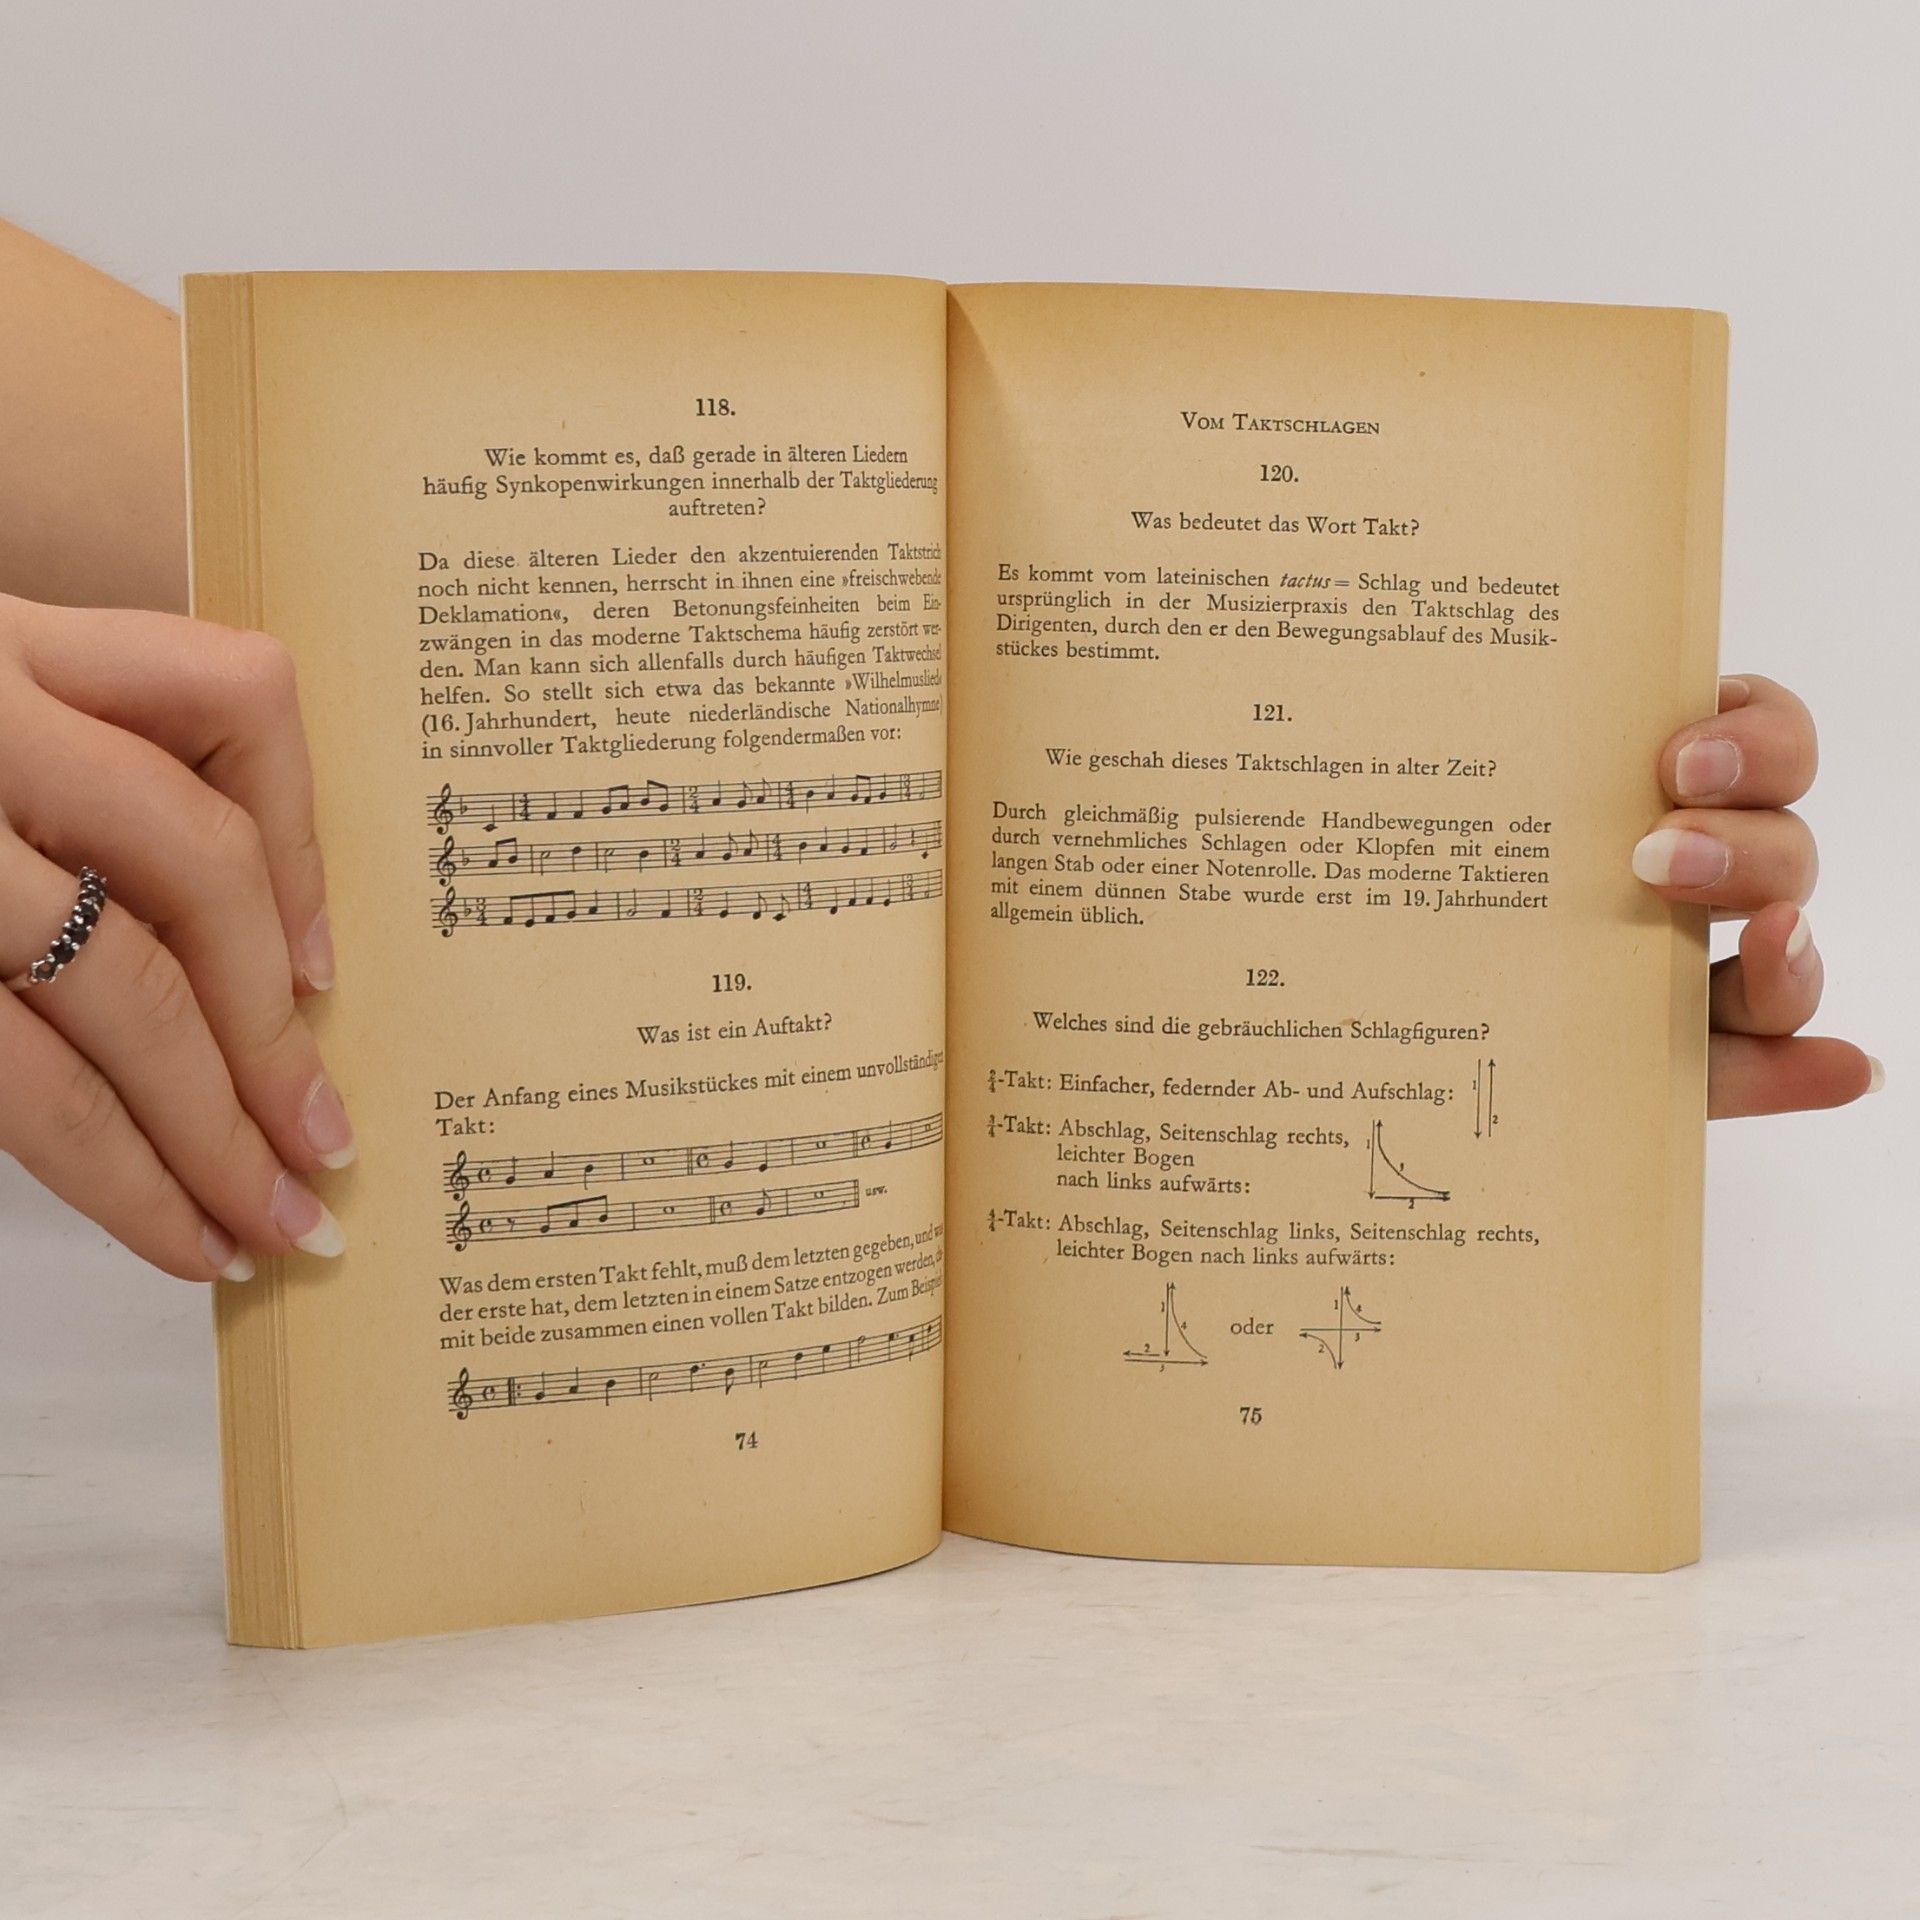 118.
Wie kommt es, daß gerade in älteren Liedern
häufig Synkopenwirkungen innerhalb der Taktgliederung
auftreten?
Da diese älteren Lieder den akzentuierenden Taktstrich
noch nicht kennen, herrscht in ihnen eine »freischwebende
Deklamation«, deren Betonungsfeinheiten beim Ein-
zwängen in das moderne Taktschema häufig zerstört wer-
den. Man kann sich allenfalls durch häufigen Taktwechsel
helfen. So stellt sich etwa das bekannte »Wilhelmuslied«
(16. Jahrhundert, heute niederländische Nationalhymne)
in sinnvoller Taktgliederung folgendermaßen vor:
119.
Was ist ein Auftakt?
Der Anfang eines Musikstückes mit einem unvollständigen
Takt:
usw.
Was dem ersten Takt fehlt, muß dem letzten gegeben, und was
der erste hat, dem letzten in einem Satze entzogen werden,
mit beide zusammen einen vollen Takt bilden. Zum Beispiel
74
VOM TAKTSCHLAGEN
120.
Was bedeutet das Wort Takt?
Es kommt vom lateinischen tactus = Schlag und bedeutet
ursprünglich in der Musizierpraxis den Taktschlag des
Dirigenten, durch den er den Bewegungsablauf des Musik-
stückes bestimmt.
121.
Wie geschah dieses Taktschlagen in alter Zeit?
Durch gleichmäßig pulsierende Handbewegungen oder
durch vernehmliches Schlagen oder Klopfen mit einem
langen Stab oder einer Notenrolle. Das moderne Taktieren
mit einem dünnen Stabe wurde erst im 19. Jahrhundert
allgemein üblich.
122.
Welches sind die gebräuchlichen Schlagfiguren?
2/4-Takt: Einfacher, federnder Ab- und Aufschlag:
1 2
3/4-Takt: Abschlag, Seitenschlag rechts,
leichter Bogen
nach links aufwärts:
1 3
2
4/4-Takt: Abschlag, Seitenschlag links, Seitenschlag rechts,
leichter Bogen nach links aufwärts:
1 4
2
3
oder
1 4
2 3
75